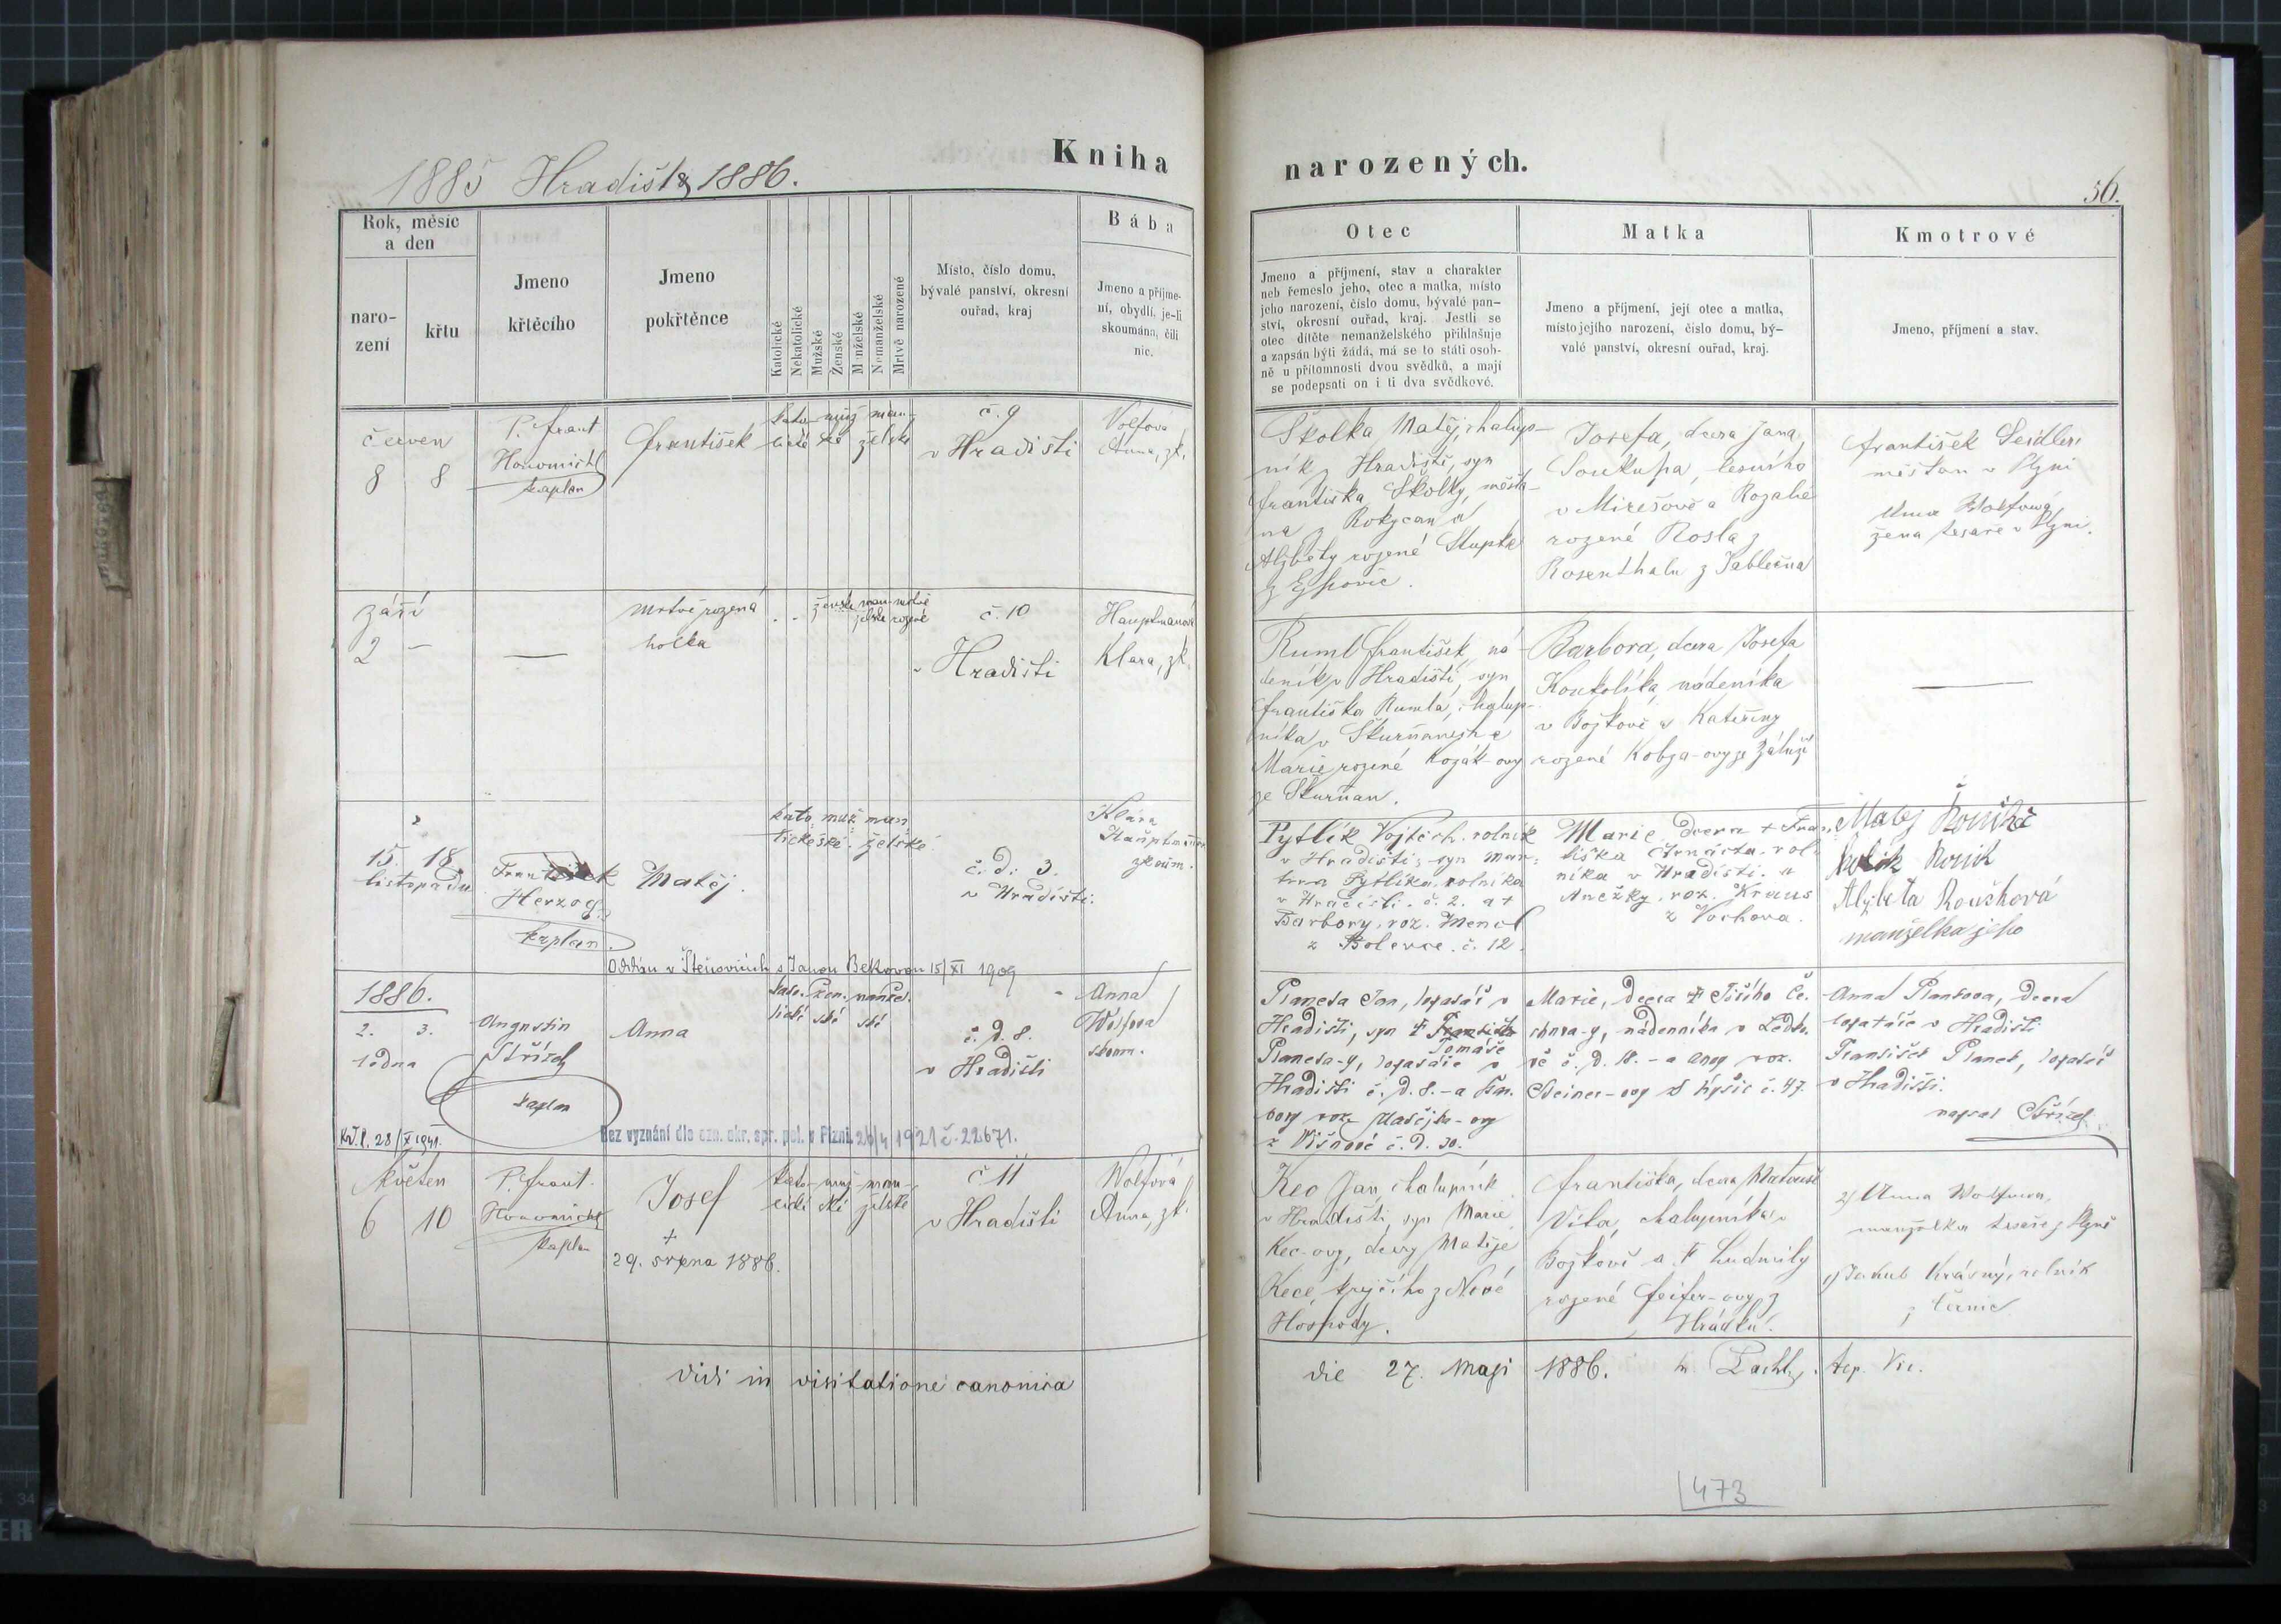 Kniha
narozených.
1885 Hradiště 1886.
56.
Rok, měsíc
a den
naro-
zení
křtu
Jmeno
křtěcího
Jmeno
pokřtěnce
Katolické
Nekatolické
Mužské
Ženské
Manželské
Nemanželské
Mrtvě narozené
Místo, číslo domu,
bývalé panství, okresní
ouřad, kraj
Bába
Jmeno a příjme-
ní, obydlí, je-li
skoumána, čili
nic.
Otec
Jmeno a příjmení, stav a charakter
neb řemeslo jeho, otec a matka, místo
jeho narození, číslo domu, bývalé pan-
ství, okresní ouřad, kraj. Jestli se
otec dítěte nemanželského přihlašuje
a zapsán býti žádá, má se to státi osob-
ně u přítomnosti dvou svědků, a mají
se podepsati on i ti dva svědkové.
Matka
Jmeno a příjmení, její otec a matka,
místo jejího narození, číslo domu, bý-
valé panství, okresní ouřad, kraj.
Kmotrové
Jmeno, příjmení a stav.
červen
8 8
P. Frant
kaplan
František
kato- muž man-
lické ské želské
č. 9
v Hradišti
Volfová
Anna, zk.
Školka Matěj, chalup-
ník z Hradiště, syn
Františka Školky, měšťa-
na z Rokycan a
Alžběty rozené
Josefa, dcera Jana
Soukupa, lesního
v Mirešově a Rozalie
rozené Rosla z
Rosenthalu z
František Seidler
měšťan v Plzni
Anna Wolfová
žena tesaře v Plzni.
září
2 —
—
mrtvě rozená
holka
ženské man- mrtvě
želské rozené
č. 10
v Hradišti
Hauptmanová
Klara, zk.
Ruml František, ná-
deník v Hradišti, syn
Františka Rumla, chalup-
níka v Škurňanech a
Marie rozené Kozák-ovy
ze Škurňan.
Barbora, dcera Josefa
Koukolíka, nádeníka
v Božkově a Kateřiny
rozené Kobza-ovy ze Záluží
—
15. 18.
listopadu
František
Herzog
kaplan.
Matěj.
kato. muž man
lické ské. želské
č. d. 3.
v Hradišti.
Klára
Hauptmanová
zkoum.
Oddán v Štěnovicích s Janou Bekovou 15/XI 1909
Pytlík Vojtěch. rolník
v Hradišti, syn Mar-
tina Pytlíka, rolníka
v Hradišti. č. 2. a †
Barbory, roz. Mencl
z Bolevce. č. 12.
Marie, dcera † Fran-
tiška rol-
níka v Hradišti. a
Anežky, roz. Kraus
z Vochova.
Matěj
Alžběta Roušková
manželka jeho
1886.
2. 3.
ledna
Augustin
Střízek
kaplan
Anna
kato. žen. manžel.
lické ské ské
č. d. 8.
v Hradišti
Anna
Wolfová
zkoum.
28/X 1941.
Bez vyznání dle ozn. okr. spr. pol. v Plzni 26/4 1921 č. 22671.
Planeta Jan, lopatář v
Hradišti, syn † Františka
Tomáše
Planeta-y, lopatáře v
Hradišti č. d. 8. - a Bar-
bory roz. Matějka-ovy
z Višňové č. d. 30.
Marie, dcera † Jiřího Če-
chura-y, nádenníka v Ledko-
vě č. d. 18. - a Anny roz.
Steiner-ovy z Kyšic č. 47.
Anna Planetova, dcera
lopatáře v Hradišti
František Planet, lopatář
v Hradišti.
napsal Střízek
květen
6 10
P. Frant.
kaplan
Josef
†
29. srpna 1886.
kato- muž- man-
lické ské želské
č 11
v Hradišti
Wolfová
Anna, zk.
Kec Jan, chalupník
v Hradišti, syn Marie
Kec-ovy, dcery Matěje
Kece, krejčího z Nové
Hospody.
Františka, dcera Matouše
Víta, chalupníka v
Božkově a † Ludmily
rozené Feifer-ovy z
Hrádku.
2) Anna Wolfova,
manželka tesaře z Plzně
1) Jakub Krásný, rolník
z Černic
vidi in visitatione canonica
die 27. Maji 1886.
Vic.
473